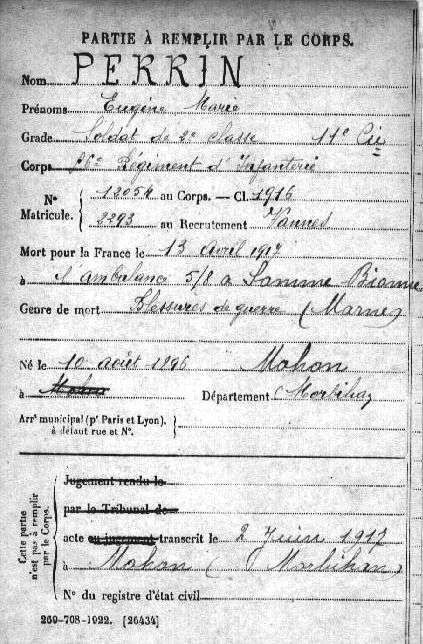 PARTIE À REMPLIR PAR LE CORPS.
Nom PERRIN
Prénoms Eugène Marie
Grade Soldat de 2e classe 11e Cie
Corps Régiment d'Infanterie
N° Matricule. 12054 au Corps. — Cl. 1916
2293 au Recrutement Vannes
Mort pour la France le 13 avril 1917
à l'ambulance 5/8 à Somme Bionne
Genre de mort Blessures de guerre (Marne)
Né le 10 août 1896 Mohon
à Mohon Département Morbihan
Arrt municipal (pr Paris et Lyon), à défaut rue et N°.
Cette partie n'est pas à remplir par le Corps.
Jugement rendu le
par le Tribunal de
acte ou jugement transcrit le 2 Juin 1917
à Mohon (Morbihan)
N° du registre d'état civil
269-708-1922. [26434]